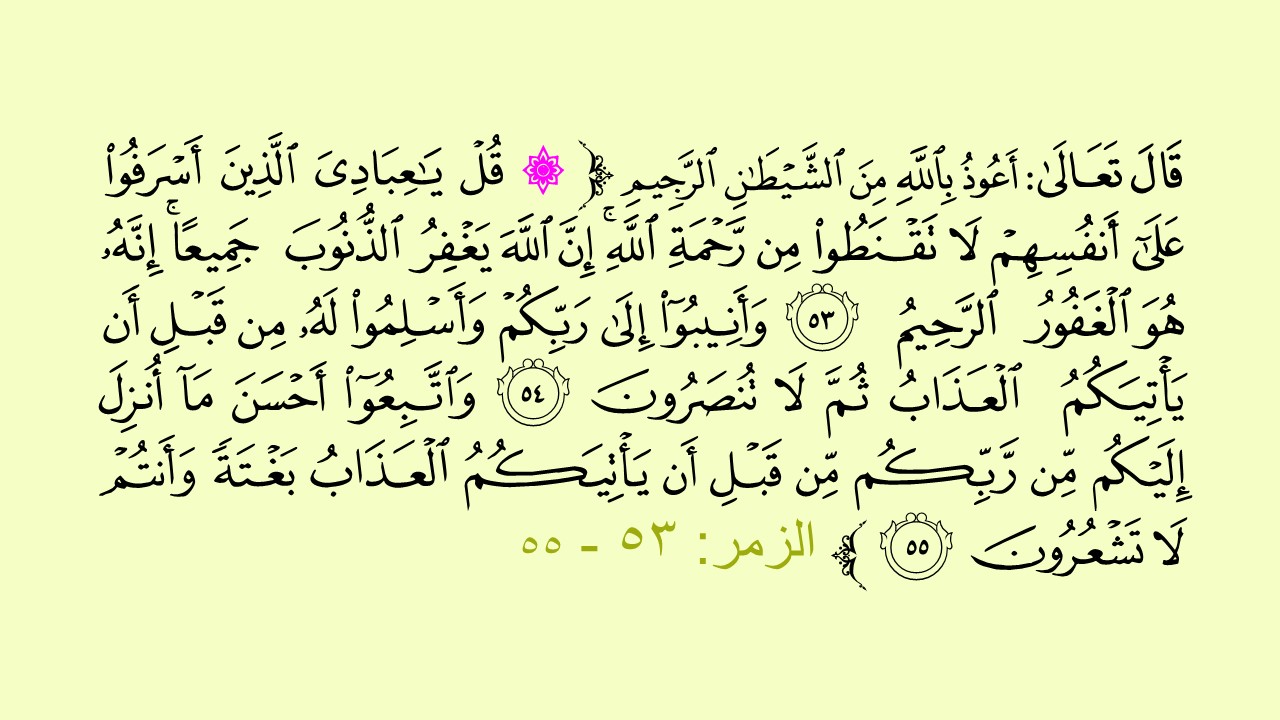 قَالَ تَعَالَىٰ: أَعُوذُ بِٱللَّهِ مِنَ ٱلشَّيۡطَٰنِ ٱلرَّجِيمِ ﴿ ۞ قُلۡ يَٰعِبَادِيَ ٱلَّذِينَ أَسۡرَفُواْ
عَلَىٰٓ أَنفُسِهِمۡ لَا تَقۡنَطُواْ مِن رَّحۡمَةِ ٱللَّهِۚ إِنَّ ٱللَّهَ يَغۡفِرُ ٱلذُّنُوبَ جَمِيعًاۚ إِنَّهُۥ
هُوَ ٱلۡغَفُورُ ٱلرَّحِيمُ ٥٣ وَأَنِيبُوٓاْ إِلَىٰ رَبِّكُمۡ وَأَسۡلِمُواْ لَهُۥ مِن قَبۡلِ أَن
يَأۡتِيَكُمُ ٱلۡعَذَابُ ثُمَّ لَا تُنصَرُونَ ٥٤ وَٱتَّبِعُوٓاْ أَحۡسَنَ مَآ أُنزِلَ
إِلَيۡكُم مِّن رَّبِّكُم مِّن قَبۡلِ أَن يَأۡتِيَكُمُ ٱلۡعَذَابُ بَغۡتَةٗ وَأَنتُمۡ
لَا تَشۡعُرُونَ ٥٥ ﴾ الزمر: ٥٣ - ٥٥